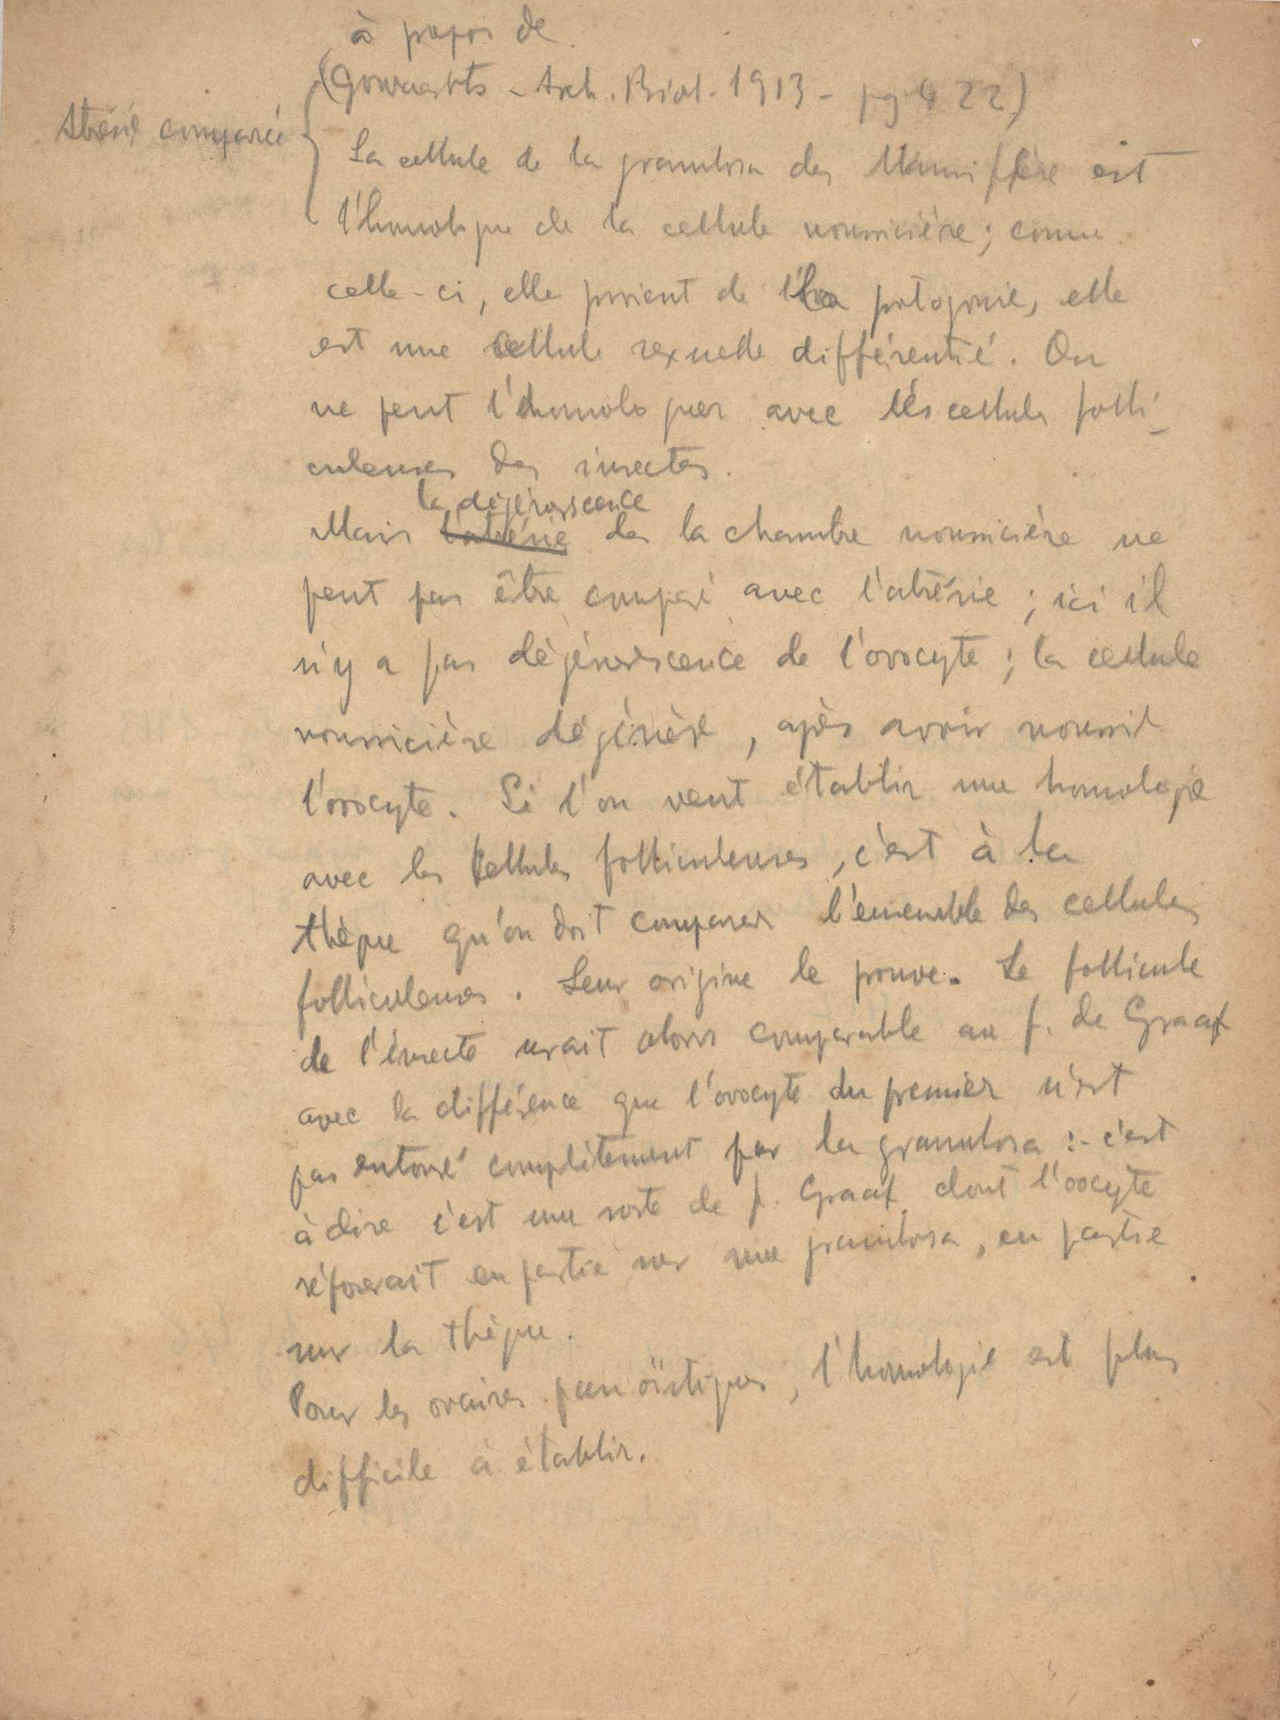 à propos de
(Govaerts - Arch. Biol. 1913 - pg 422)
Atrésie comparée
La cellule de la granulosa des Mammifère est
l'homologue de la cellule nourricière ; comme
celle-ci, elle provient de la protogonie, elle
est une cellule sexuelle différentié. On
ne peut l'homologuer avec les cellules folli-
culeuses des insectes.
la dégénérescence
Mais l'atrésie de la chambre nourricière ne
peut pas être comparé avec l'atrésie ; ici il
n'y a pas dégénérescence de l'ovocyte ; la cellule
nourricière dégénère, après avoir nourrit
l'ovocyte. Si l'on veut établir une homologie
avec les cellules folliculeuses, c'est à la
thèque qu'on doit comparer l'ensemble des cellules
folliculeuses. Leur origine le prouve. Le follicule
de l'insecte serait alors comparable au f. de Graaf
avec la différence que l'ovocyte du premier n'est
pas entouré complètement par la granulosa :- c'est
à dire c'est une sorte de f. Graaf dont l'oocyte
réposerait en partie sur une granulosa, en partie
sur la thèque.
Pour les ovaires panoïstiques, l'homologie est plus
difficile à établir.